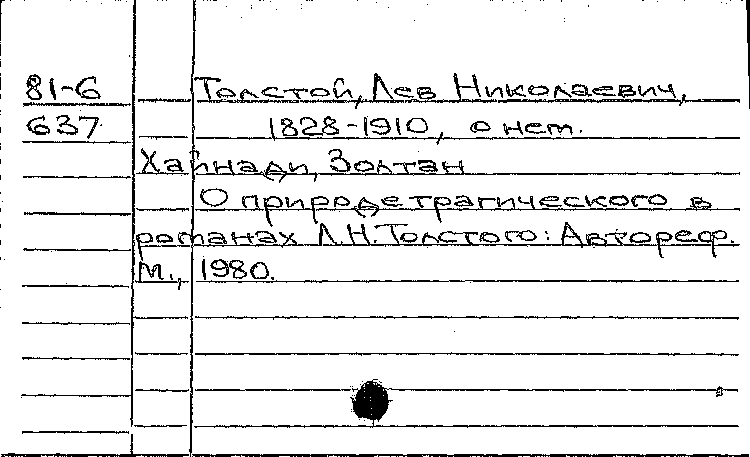 81-6 Толстой, Лев Николаевич,
637 1828-1910, о нем.
Хайнади, Золтан
О природе трагического в
романах Л.Н.Толстого: Автореф.
М., 1980.